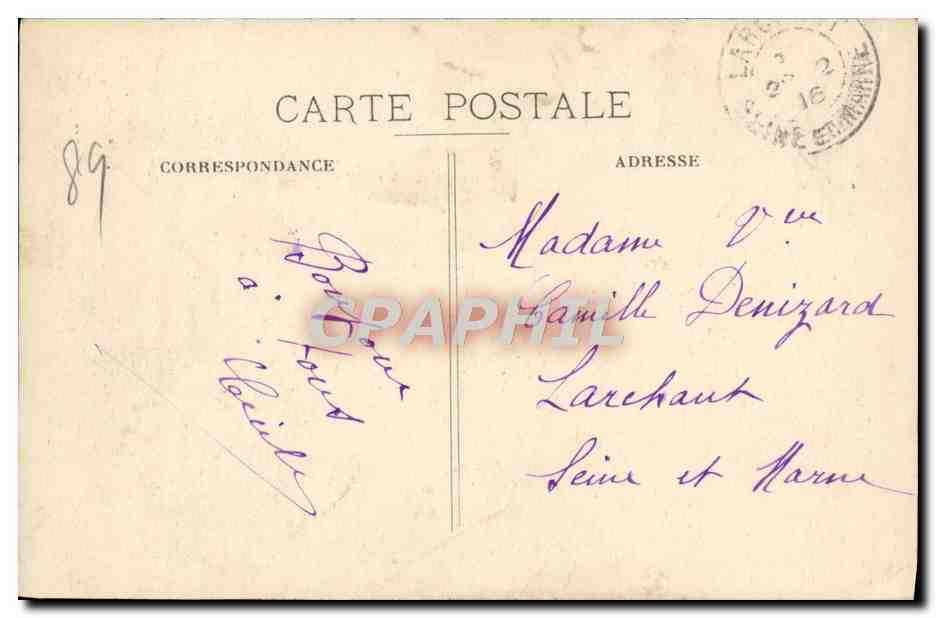 CARTE POSTALE
CORRESPONDANCE
ADRESSE
89.
Bonjour
à tous
Madame Vve
Camille Denizard
Larchant
Seine et Marne
SEINE ET MARNE
2
16
CPAPHIL